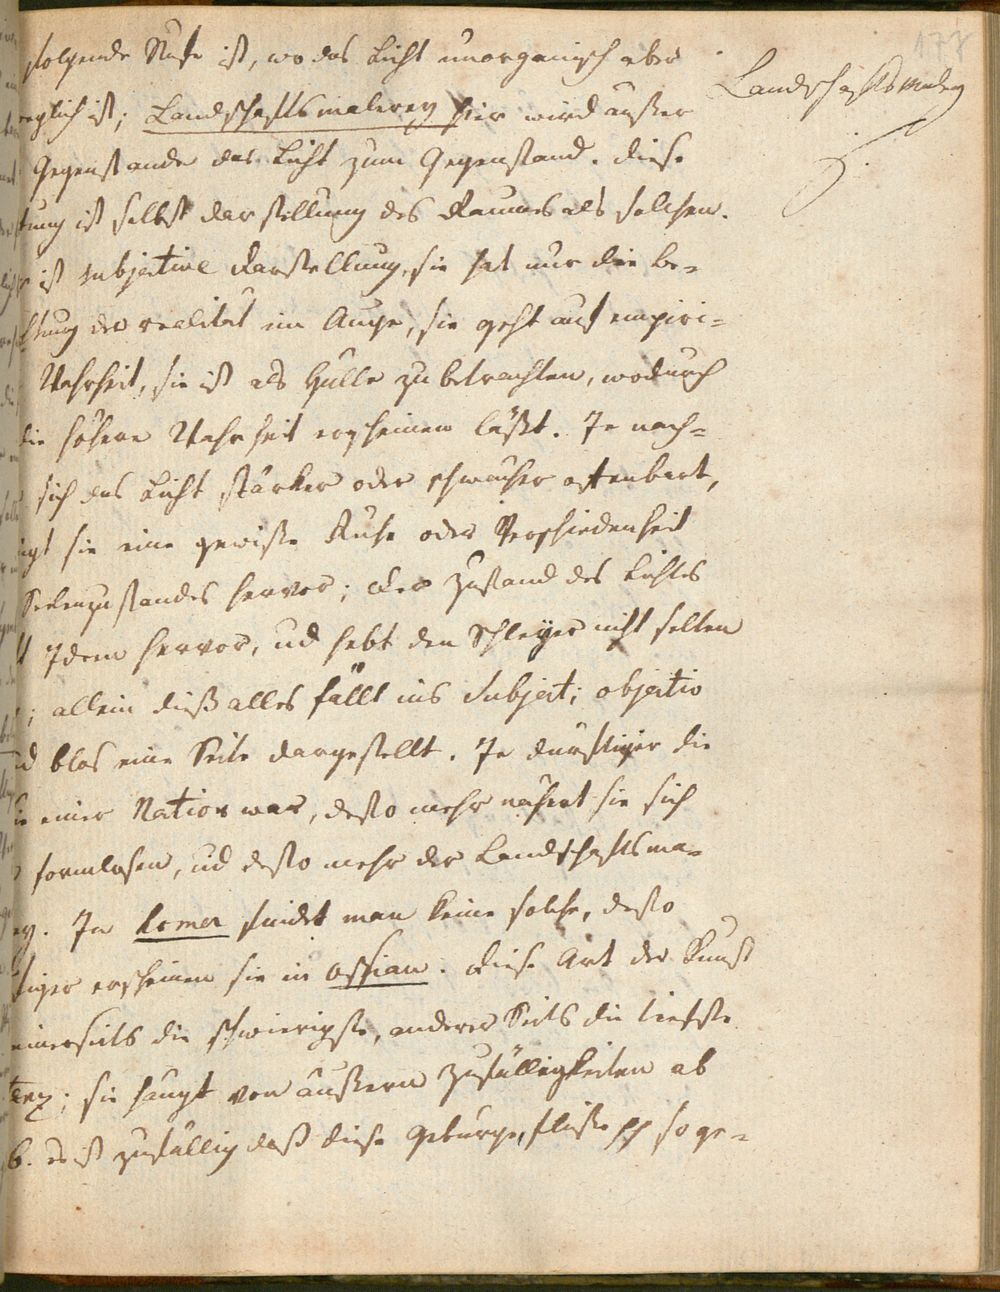 177
Landschaftsmalerey
folgende Stufe ist, wo das Licht unorganisch aber
weglich ist; Landschaftsmalerey hier wird außer
Gegenstande das Licht zum Gegenstand. diese
tung ist selbst darstellung des Raumes als solchen.
ist subjective darstellung, sie hat nur die be-
tung der realität im Auge, sie geht auf empiri-
Wahrheit, sie ist als Hülle zu betrachten, wodurch
die höhere Wahrheit erscheinen läßt. Je nach-
sich das Licht stärker oder schwächer offenbart,
ngt sie eine gewisse Ruhe oder Verschiedenheit
Seelenzustandes hervor; der Zustand des Lichtes
t Ideen hervor, ud hebt den Schleyer nicht selten
; allein dieß alles fällt ins Subject; objectiv
d blos eine Seite dargestellt. Je dürftiger die
einer Nation war, desto mehr nähert sie sich
formlosen, ud desto mehr der Landschaftsma-
ey. In Homer findet man keine solche, desto
tiger erscheinen sie in Ossian. diese Art der Kunst
einerseits die schwierigste, anderer Seits die tiefste
; sie hängt von äußern Zufälligkeiten ab
b. es ist zufällig daß diese Gebürge, flüße pp so ge-